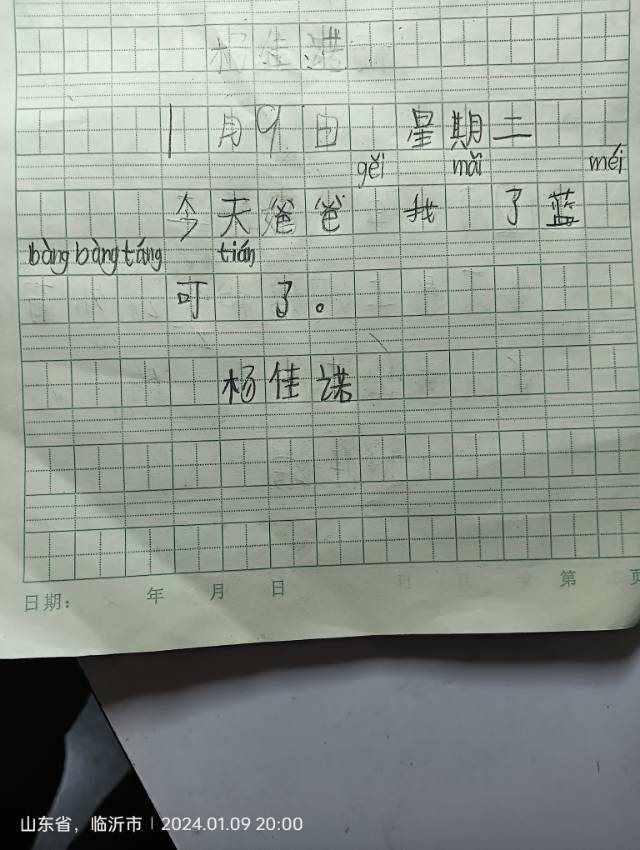 杨佳诺
1月9日 星期二
gěi mǎi méi
今天爸爸 我 了蓝
bàng bàng táng tián
可 了。
杨佳诺
日期： 年 月 日 第 页
山东省，临沂市 | 2024.01.09 20:00